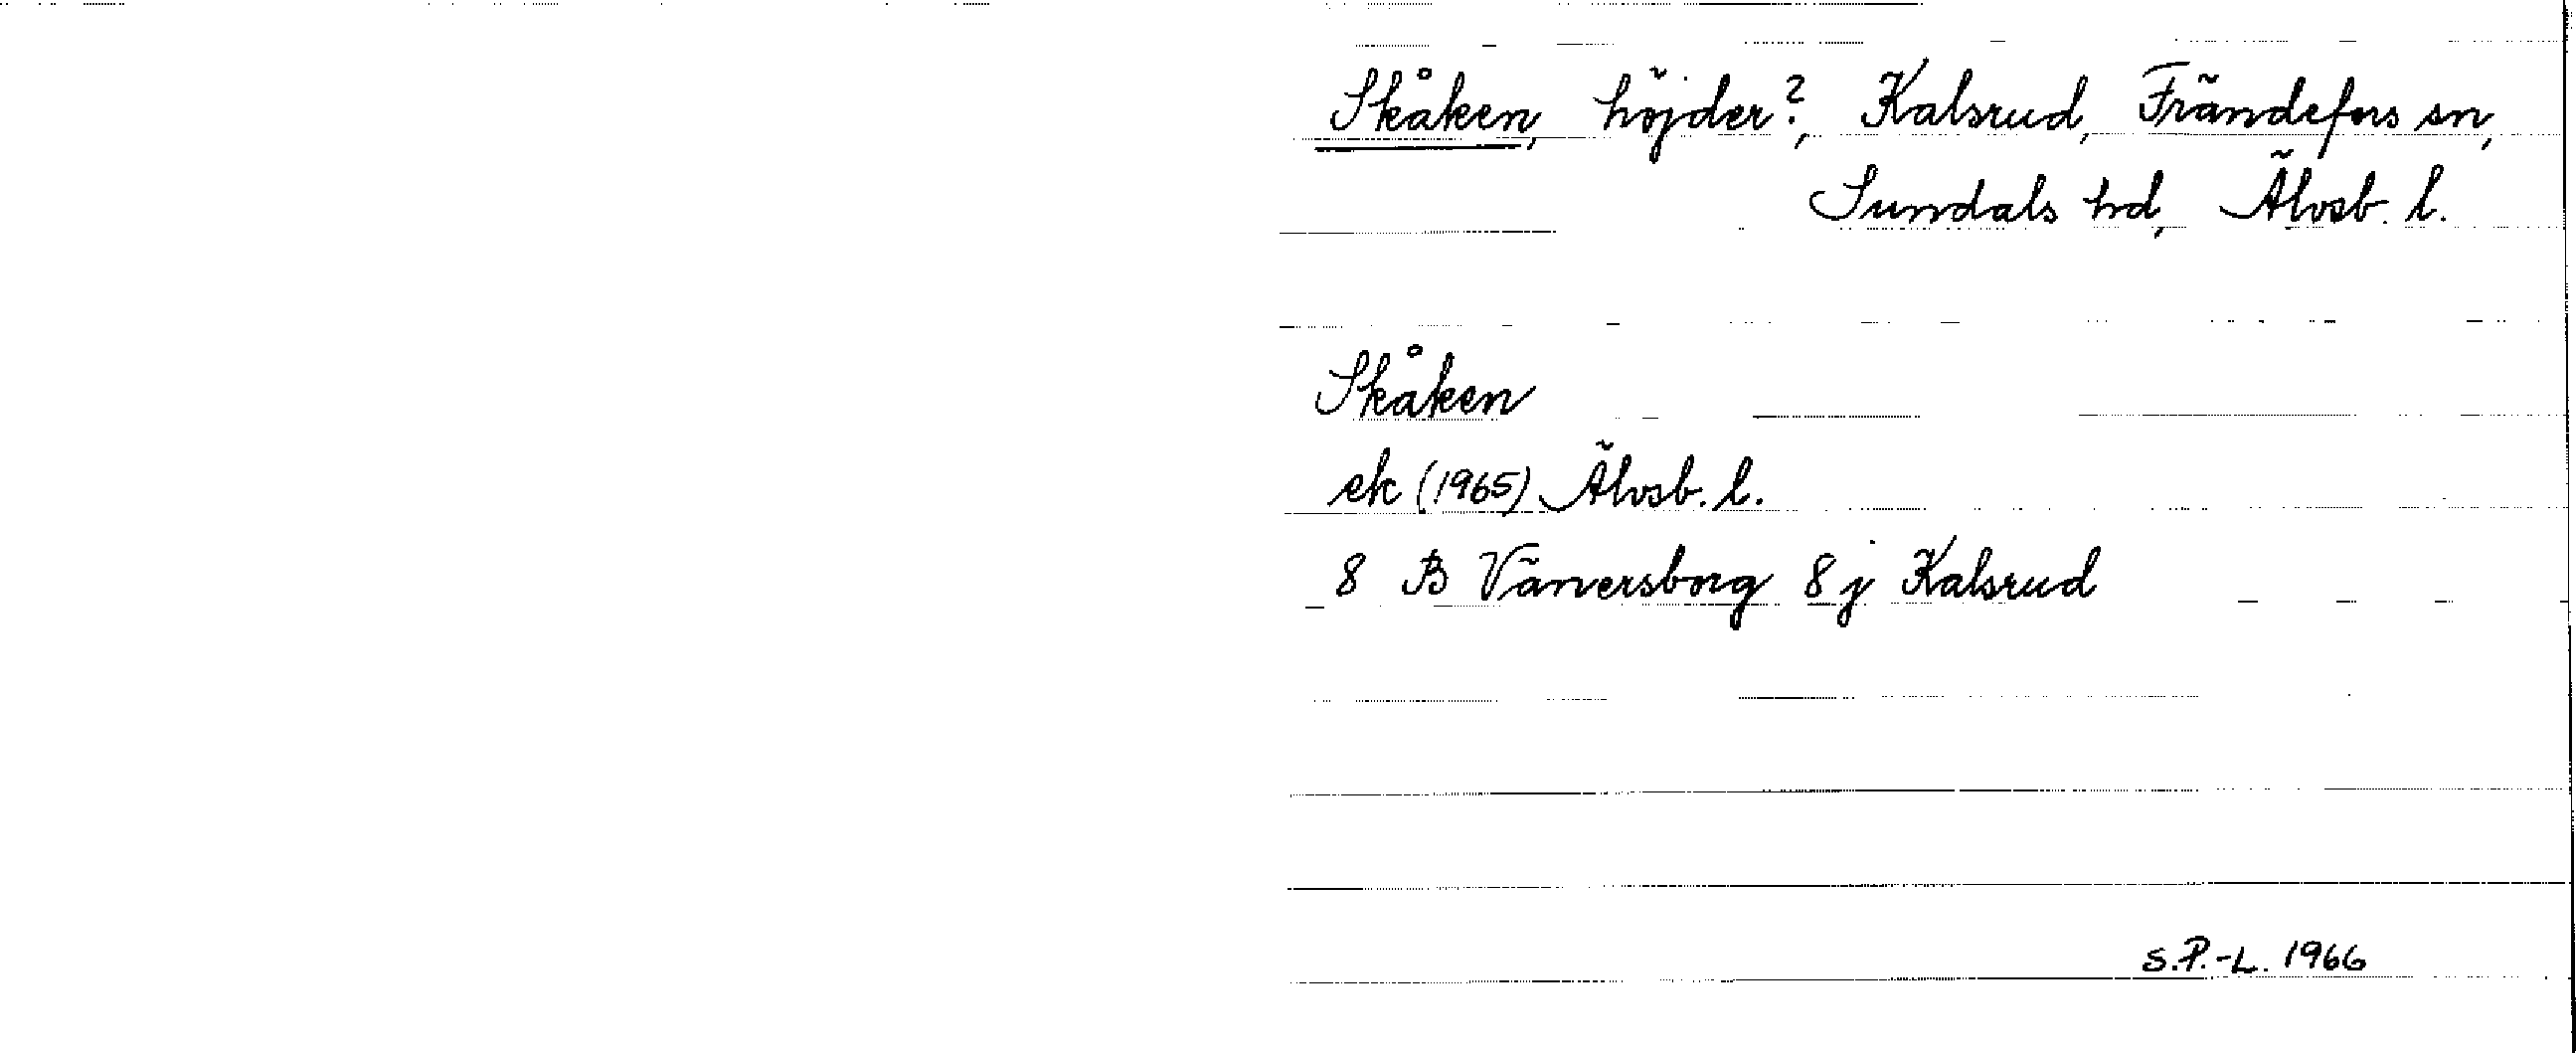 Skåken, höjder?, Kalsrud, Frändefors sn,
Sundals hd, Älvsb. l.
Skåken
ek (1965) Älvsb. l.
8 B Vänersborg 8 j Kalsrud
S.P.-L. 1966